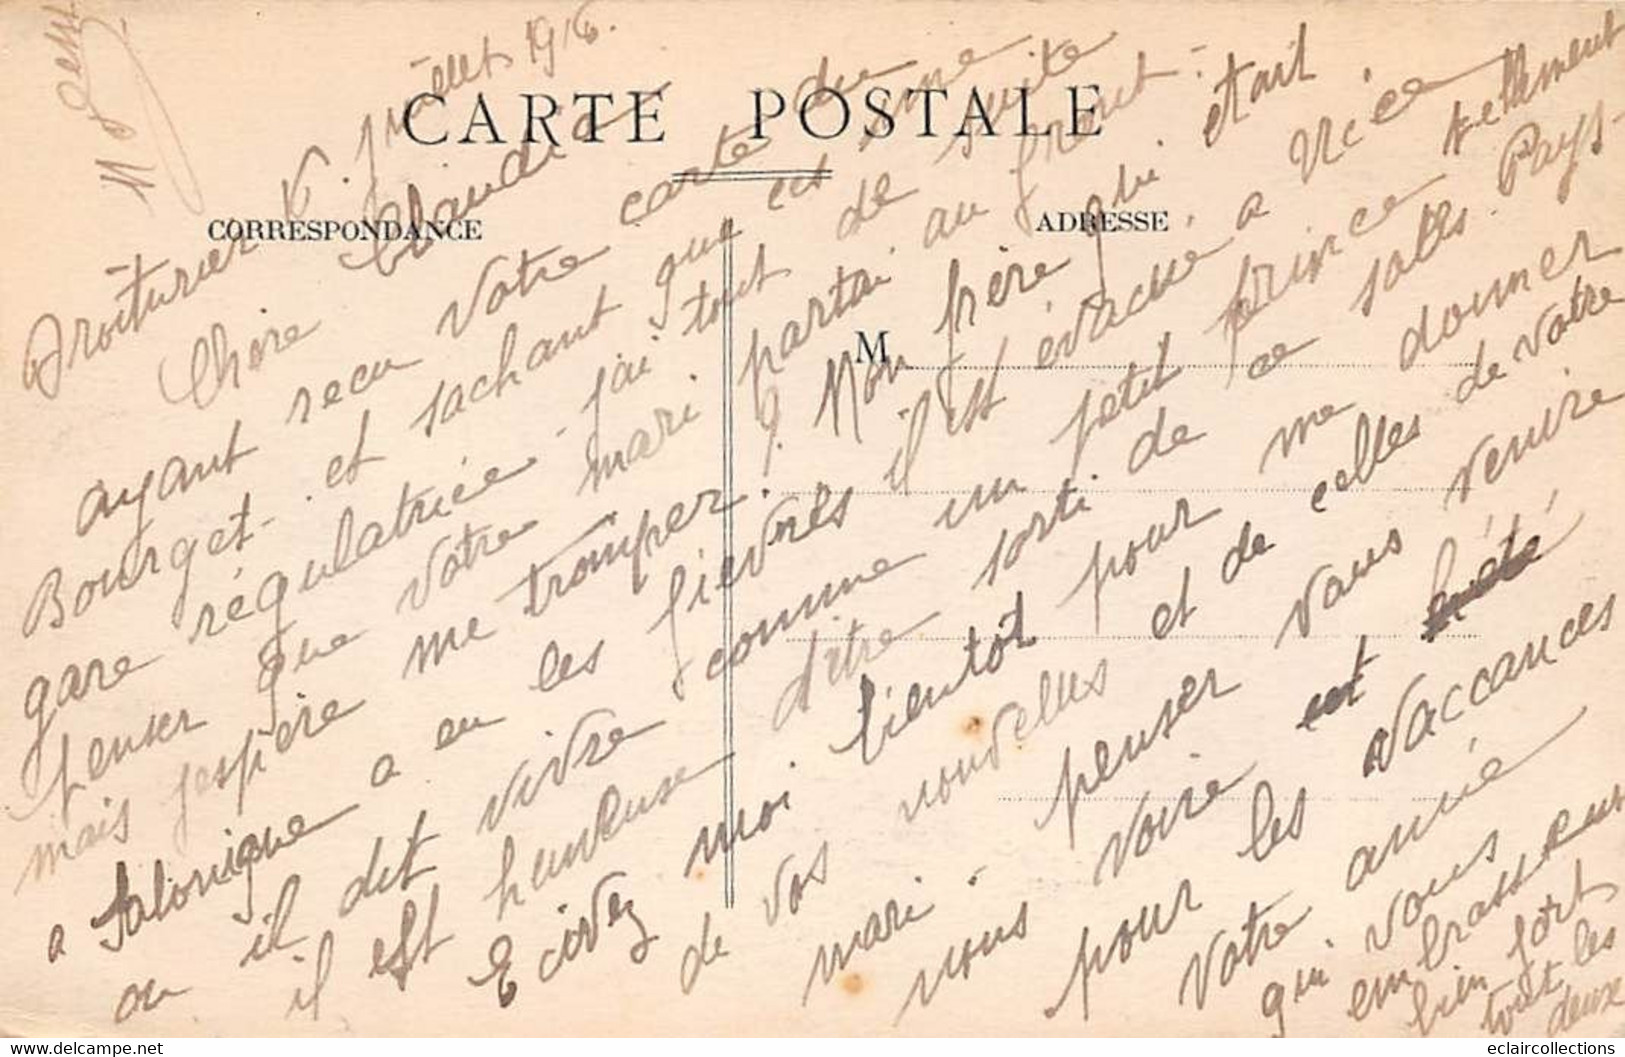 CARTE POSTALE
CORRESPONDANCE
ADRESSE
M
Droiturier 6 juillet 1916.
Chère Claudia
ayant recu votre carte du
Bourget - et sachant que est une
gare régulatrice - j'ai tout de suite
penser que votre mari partai au front :
mais j'espère me tromper. ? Mon frère qui était
a Salonique a eu les fievres il est évacué a Nice
ou il dit vivre comme un petit prince tellement
il est heureuse d'être sorti de ce sales Pays -
Ecivez moi bientot pour me donner
de vos nouvelles et de celles de votre
mari. penser vous venire
nous voire
pour les vaccances
votre amie
qui vous
embrasse
bien fort
tout les
deux
eclaircollections.com